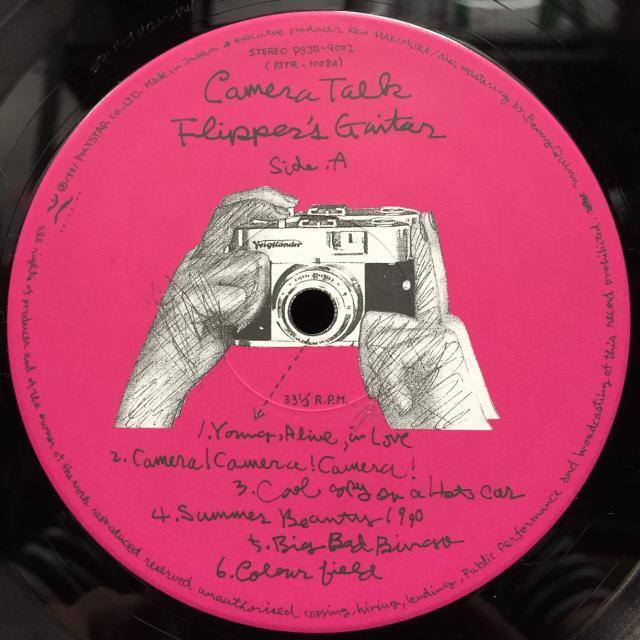 STEREO PSJR-9002
(PSTR-1008A)
Camera Talk
Flipper's Guitar
Side A
Voigtländer
33⅓ R.P.M.
1. Young, Alive, in Love
2. Camera! Camera! Camera!
3. Cool spy on a Hot car
4. Summer Beauty 1990
5. Big Bad Bingo
6. Colour field
all rights of producer and of the owner of the work reproduced reserved unauthorised copying, hiring, lending, public performance and broadcasting of this record prohibited.
℗1991 POLYSTAR CO., LTD. Made in Japan executive producer Ken MAKIMURA / disc mastering by Benny Quinn